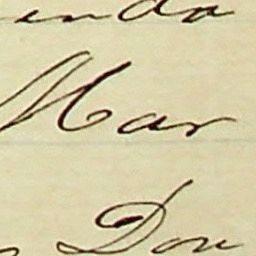 enda
Mar
Don